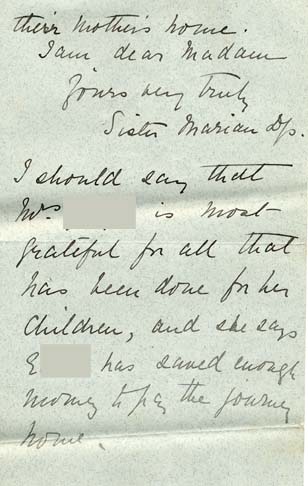 their Mother's home.
I am dear Madam
Yours very truly
Sister Marian
I should say that
Mrs is most
grateful for all that
has been done for her
Children, and she says
E has saved enough
money to pay the journey
home.